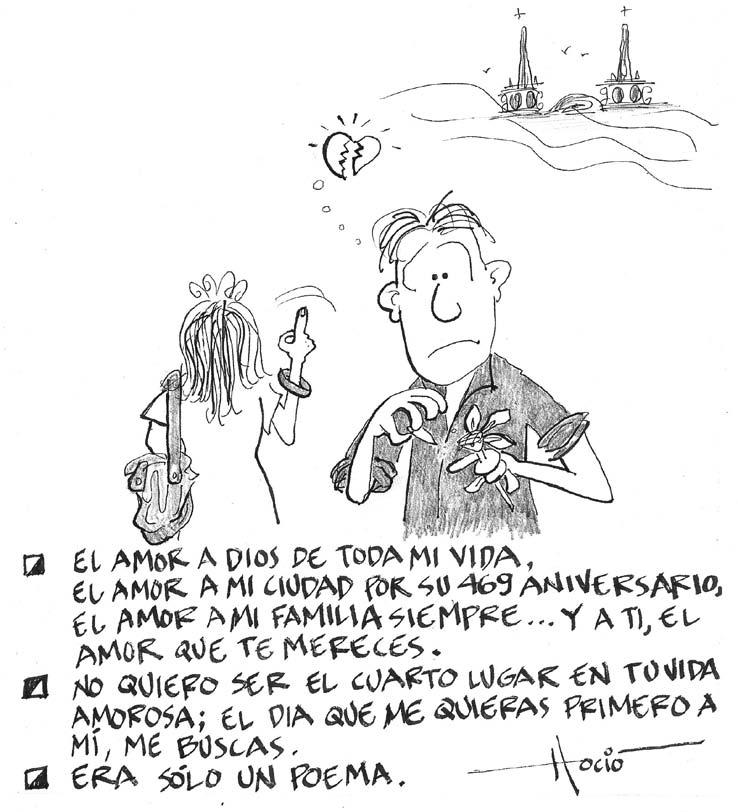 EL AMOR A DIOS DE TODA MI VIDA,
EL AMOR A MI CIUDAD POR SU 469 ANIVERSARIO,
EL AMOR A MI FAMILIA SIEMPRE... Y A TI, EL
AMOR QUE TE MERECES.
NO QUIERO SER EL CUARTO LUGAR EN TU VIDA
AMOROSA; EL DIA QUE ME QUIERAS PRIMERO A
MÍ, ME BUSCAS.
ERA SÓLO UN POEMA.
HOCIO